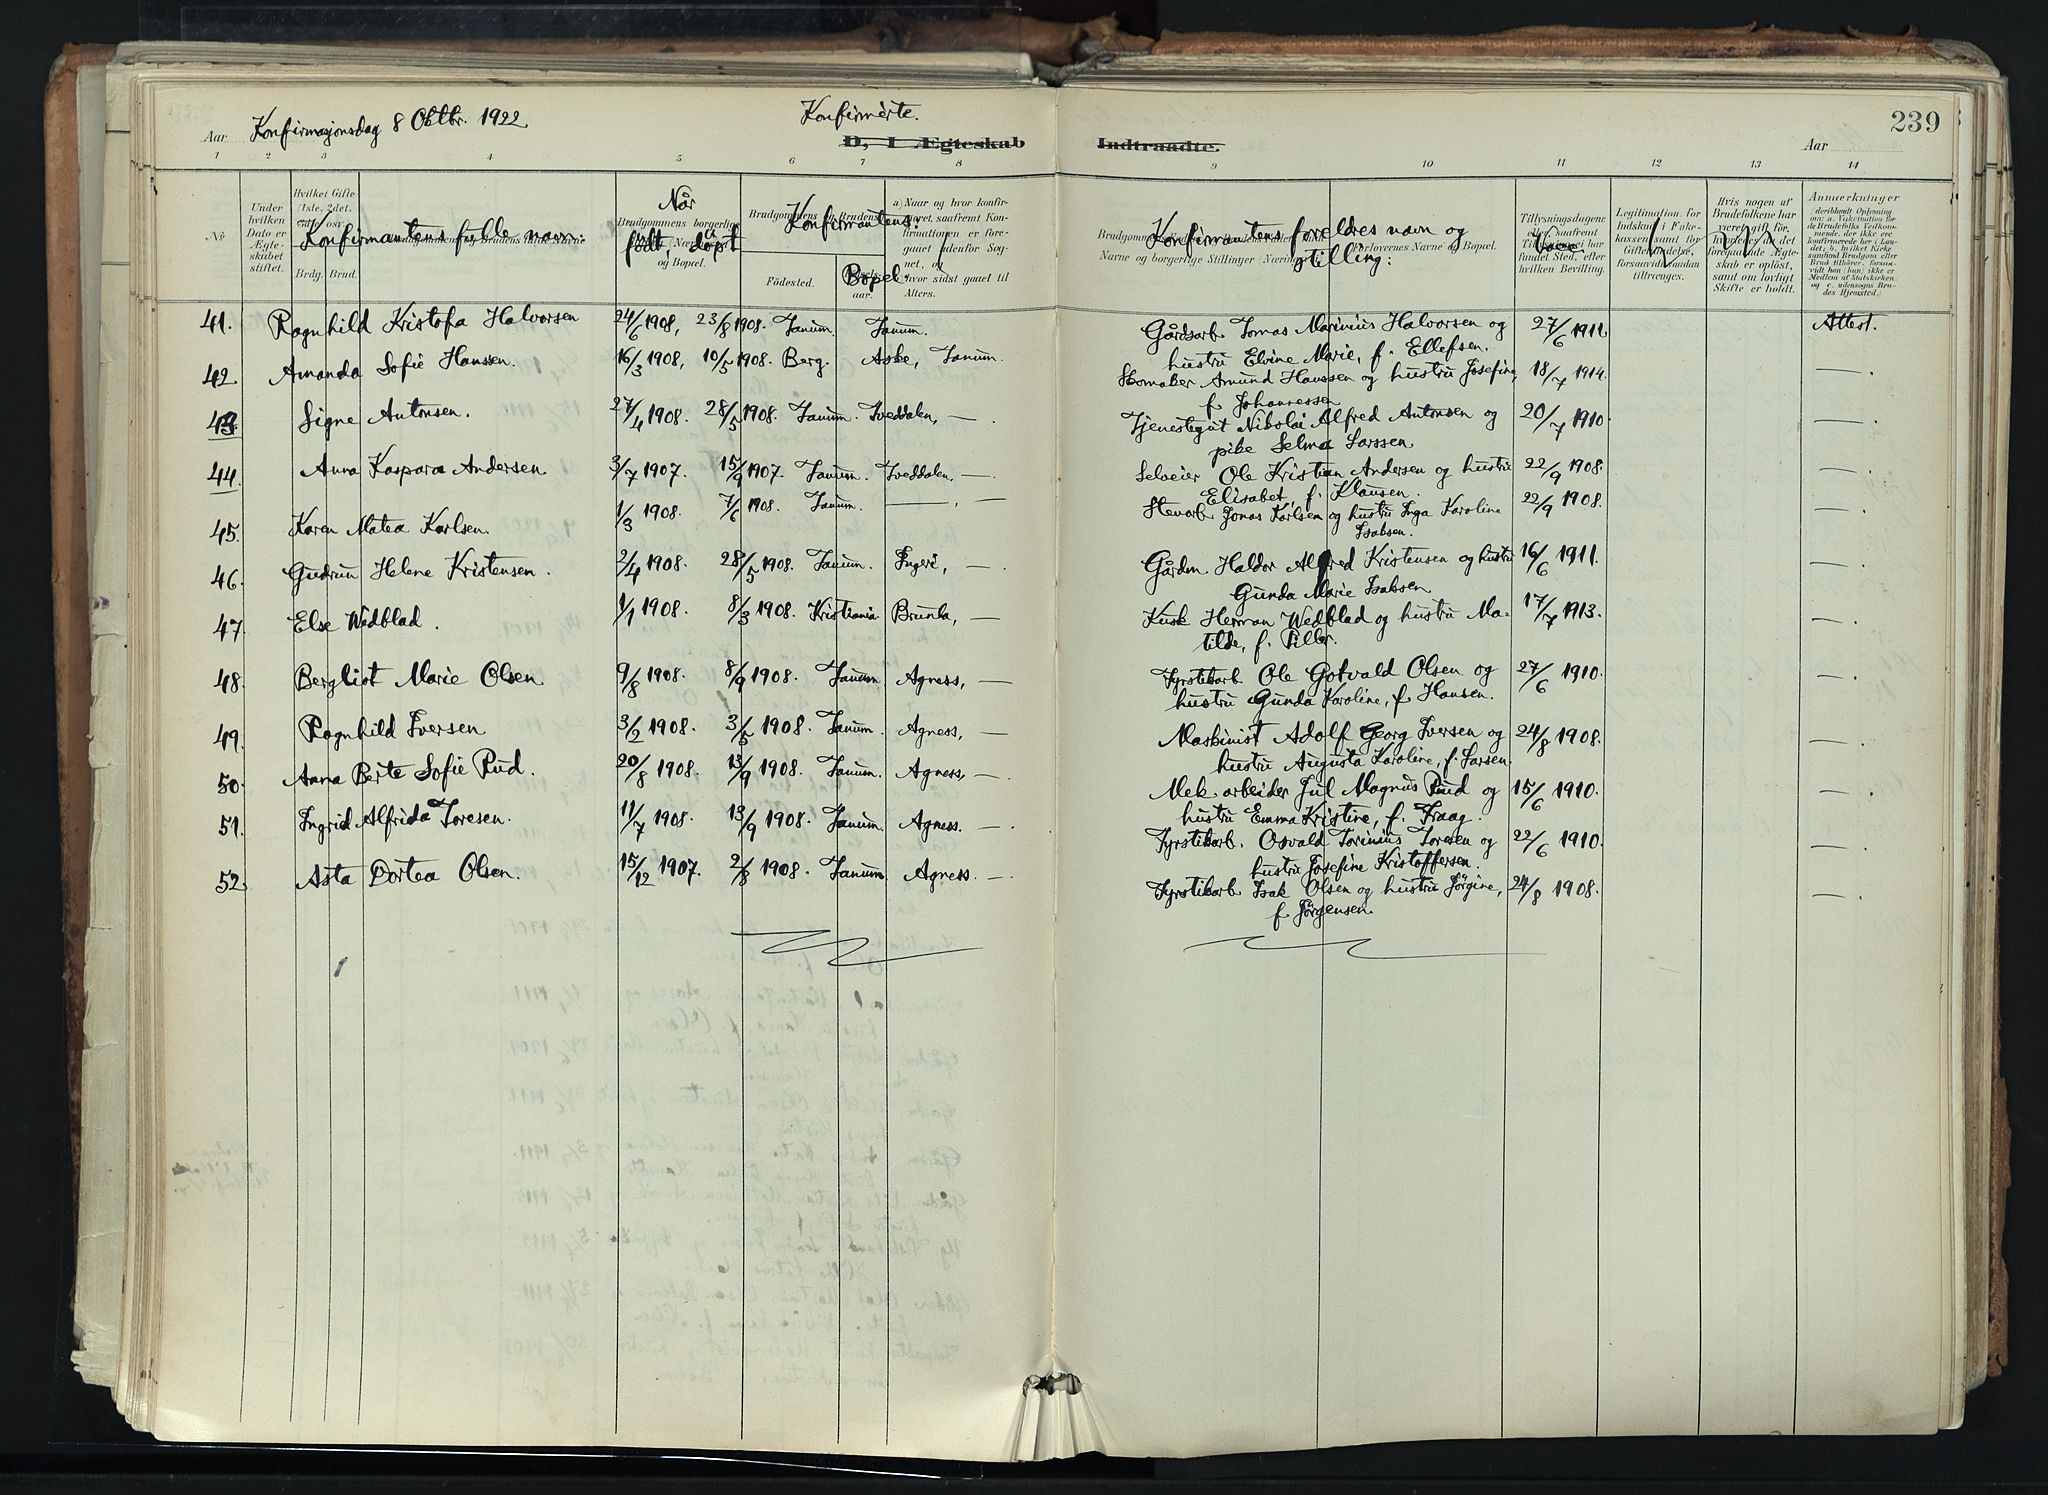 Aar Konfirmasjonsdag 8 Oktbr. 1922 Konfirmerte. 239
D, I. Ægteskab Indtraadte. Aar
1 2 3 4 5 6 7 8 9 10 11 12 13 14
No Under hvilken Dato er Ægteskabet stiftet. Hvilket Gifte (1ste, 2det, osv. Brdg. Brud. Konfirmantens fulle navn: Når født, døpt Brudgommens borgerlige og Bopæl. Konfirmantens: Födested. Bopel. aar. a) Naar og hvor konfirmeret, saafremt Konfirmationen er foregaaet udenfor Sognet, og hvor sidst gaaet til Alters.
Konfirmantens foreldres navn og stilling: Navne og borgerlige Stillinger Forlovernes Navne og Bopæl. Tillysningsdagene eller saafremt har fundet Sted, efter hvilken Bevilling. Vacc. Legitimation for Indskud i Enkekassen samt for saavidt saadan tiltrænges. Hvis nogen af Brudefolkene har været gift før, det foregaaende Ægteskab er opløst, samt om lovligt Skifte er holdt. Anmærkninger
41. Ragnhild Kristofa Halvorsen 24/6 1908, 23/8 1908. Tanum. Tanum. Gårdsarb Tomas Marinius Halvorsen og 27/6 1911. Attest.
hustru Elvine Marie, f. Ellefsen.
42. Amanda Sofie Hanssen. 16/3 1908, 10/5 1908. Berg. Aske, Tanum. Skomaker Amund Hanssen og hustru Josefine, 18/7 1914. — .
f Johannessen
43 Signe Antonsen. 27/4 1908. 28/5 1908. Tanum. Tveddalen, — . Tjenestegut Nikolai Alfred Antonsen og 20/7 1910 — .
pike Selma Larssen
44 Anna Kaspara Andersen 3/7 1907. 15/9 1907. Tanum. Tveddalen, — Selveier Ole Kristian Andersen og hustru 22/9 1908. — .
Elisabet, f. Klausen.
45. Karen Matea Karlsen. 1/3 1908. 7/6 1908. Tanum. —, — Stenarb Jonas Karlsen og hustru Inga Karoline 22/9 1908. — .
Isaksen.
46. Gudrun Helene Kristensen. 2/4 1908. 28/5 1908. Tanum. — Gårdm Haldor Alfred Kristensen og hustru 16/6 1911. — .
Gunda Marie Isaksen
47. Else Wedblad. 1/1 1908. 8/3 1908. Kristiania. Brunla, — Kusk Herman Wedblad og hustru Ma- 17/7 1913. — .
tilde, f. Piller.
48. Bergliot Marie Olsen 9/8 1908. 8/9 1908. Tanum Agness, — Fyrstikarb Ole Gotvald Olsen og 27/6 1910. — .
hustru Gunda Karoline, f Hansen.
49. Ragnhild Iversen 3/2 1908. 3/5 1908. Tanum. Agness, — Maskinist Adolf Georg Iversen og 24/8 1908. — .
hustru Augusta Karoline, f. Larsen.
50. Anna Berte Sofie Rud. 20/8 1908. 13/9 1908. Tanum. Agness, — Mek. arbeider Jul Magnus Rud og 15/6 1910. — .
hustru Emma Kristine, f. Kraag.
51. Ingrid Alfrida Toresen. 11/7 1908. 13/9 1908. Tanum. Agness. — Fyrstikarb. Osvald Torinius Toresen og 22/6 1910. — .
hustru Josefine Kristoffersen.
52. Asta Dortea Olsen. 15/12 1907. 2/8 1908. Tanum Agness. — Fyrstikarb Isak Olsen og hustru Jørgine, 24/8 1908. — .
f Jørgensen